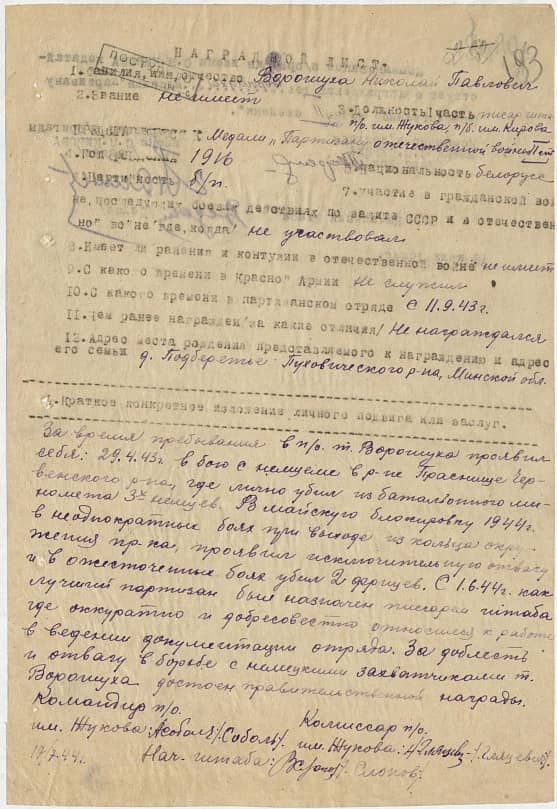 НАГРАДНОЙ ЛИСТ.
183
1. Фамилия, имя, отчество Ворошуха Николай Павлович
2. Звание не имеет
3. Должность, часть писарь шт.
п/о. им. Жукова, п/б. им. Кирова.
Медали „Партизану отечественной войны" II ст
1916
национальность белорус
Партийность б/п.
7. участие в гражданской вой
не, последующих боевых действиях по защите СССР и в отечествен
ной войне где, когда/ не участвовал
8. Имеет ли ранения и контузии в отечественной войне не имеет
9. С какого времени в Красной Армии Не служил
10. С какого времени в партизанском отряде С 11.9.43г.
11. Чем ранее награжден /за какие отличия/ Не награждался
12. Адрес места рождения представляемого к награждению и адрес
его семьи д. Подберетье Пуховического р-на, Минской обл.
1. Краткое конкретное изложение личного подвига или заслуг.
За время пребывания в п/о. т. Ворошуха проявил
себя: 29.4.43г. в бою с немцами в р-не Праснище Чер-
венского р-на, где лично убил из батальонного ми-
номета 3х немцев. В майскую блокировку 1944г.
в неоднократных боях при выходе из кольца окру-
жения пр-ка, проявил исключительную отвагу
и в ожесточенных боях убил 2 фрицев. С 1.6.44г. как
лучший партизан был назначен писарем штаба
где аккуратно и добросовестно относился к работе
в ведении документации отряда. За доблесть
и отвагу в борьбе с немецкими захватчиками т.
Ворошуха достоен правительственной награды.
Командир п/о. Комиссар п/о.
им. Жукова: /Соболь/. им. Жукова:
Нач. штаба: